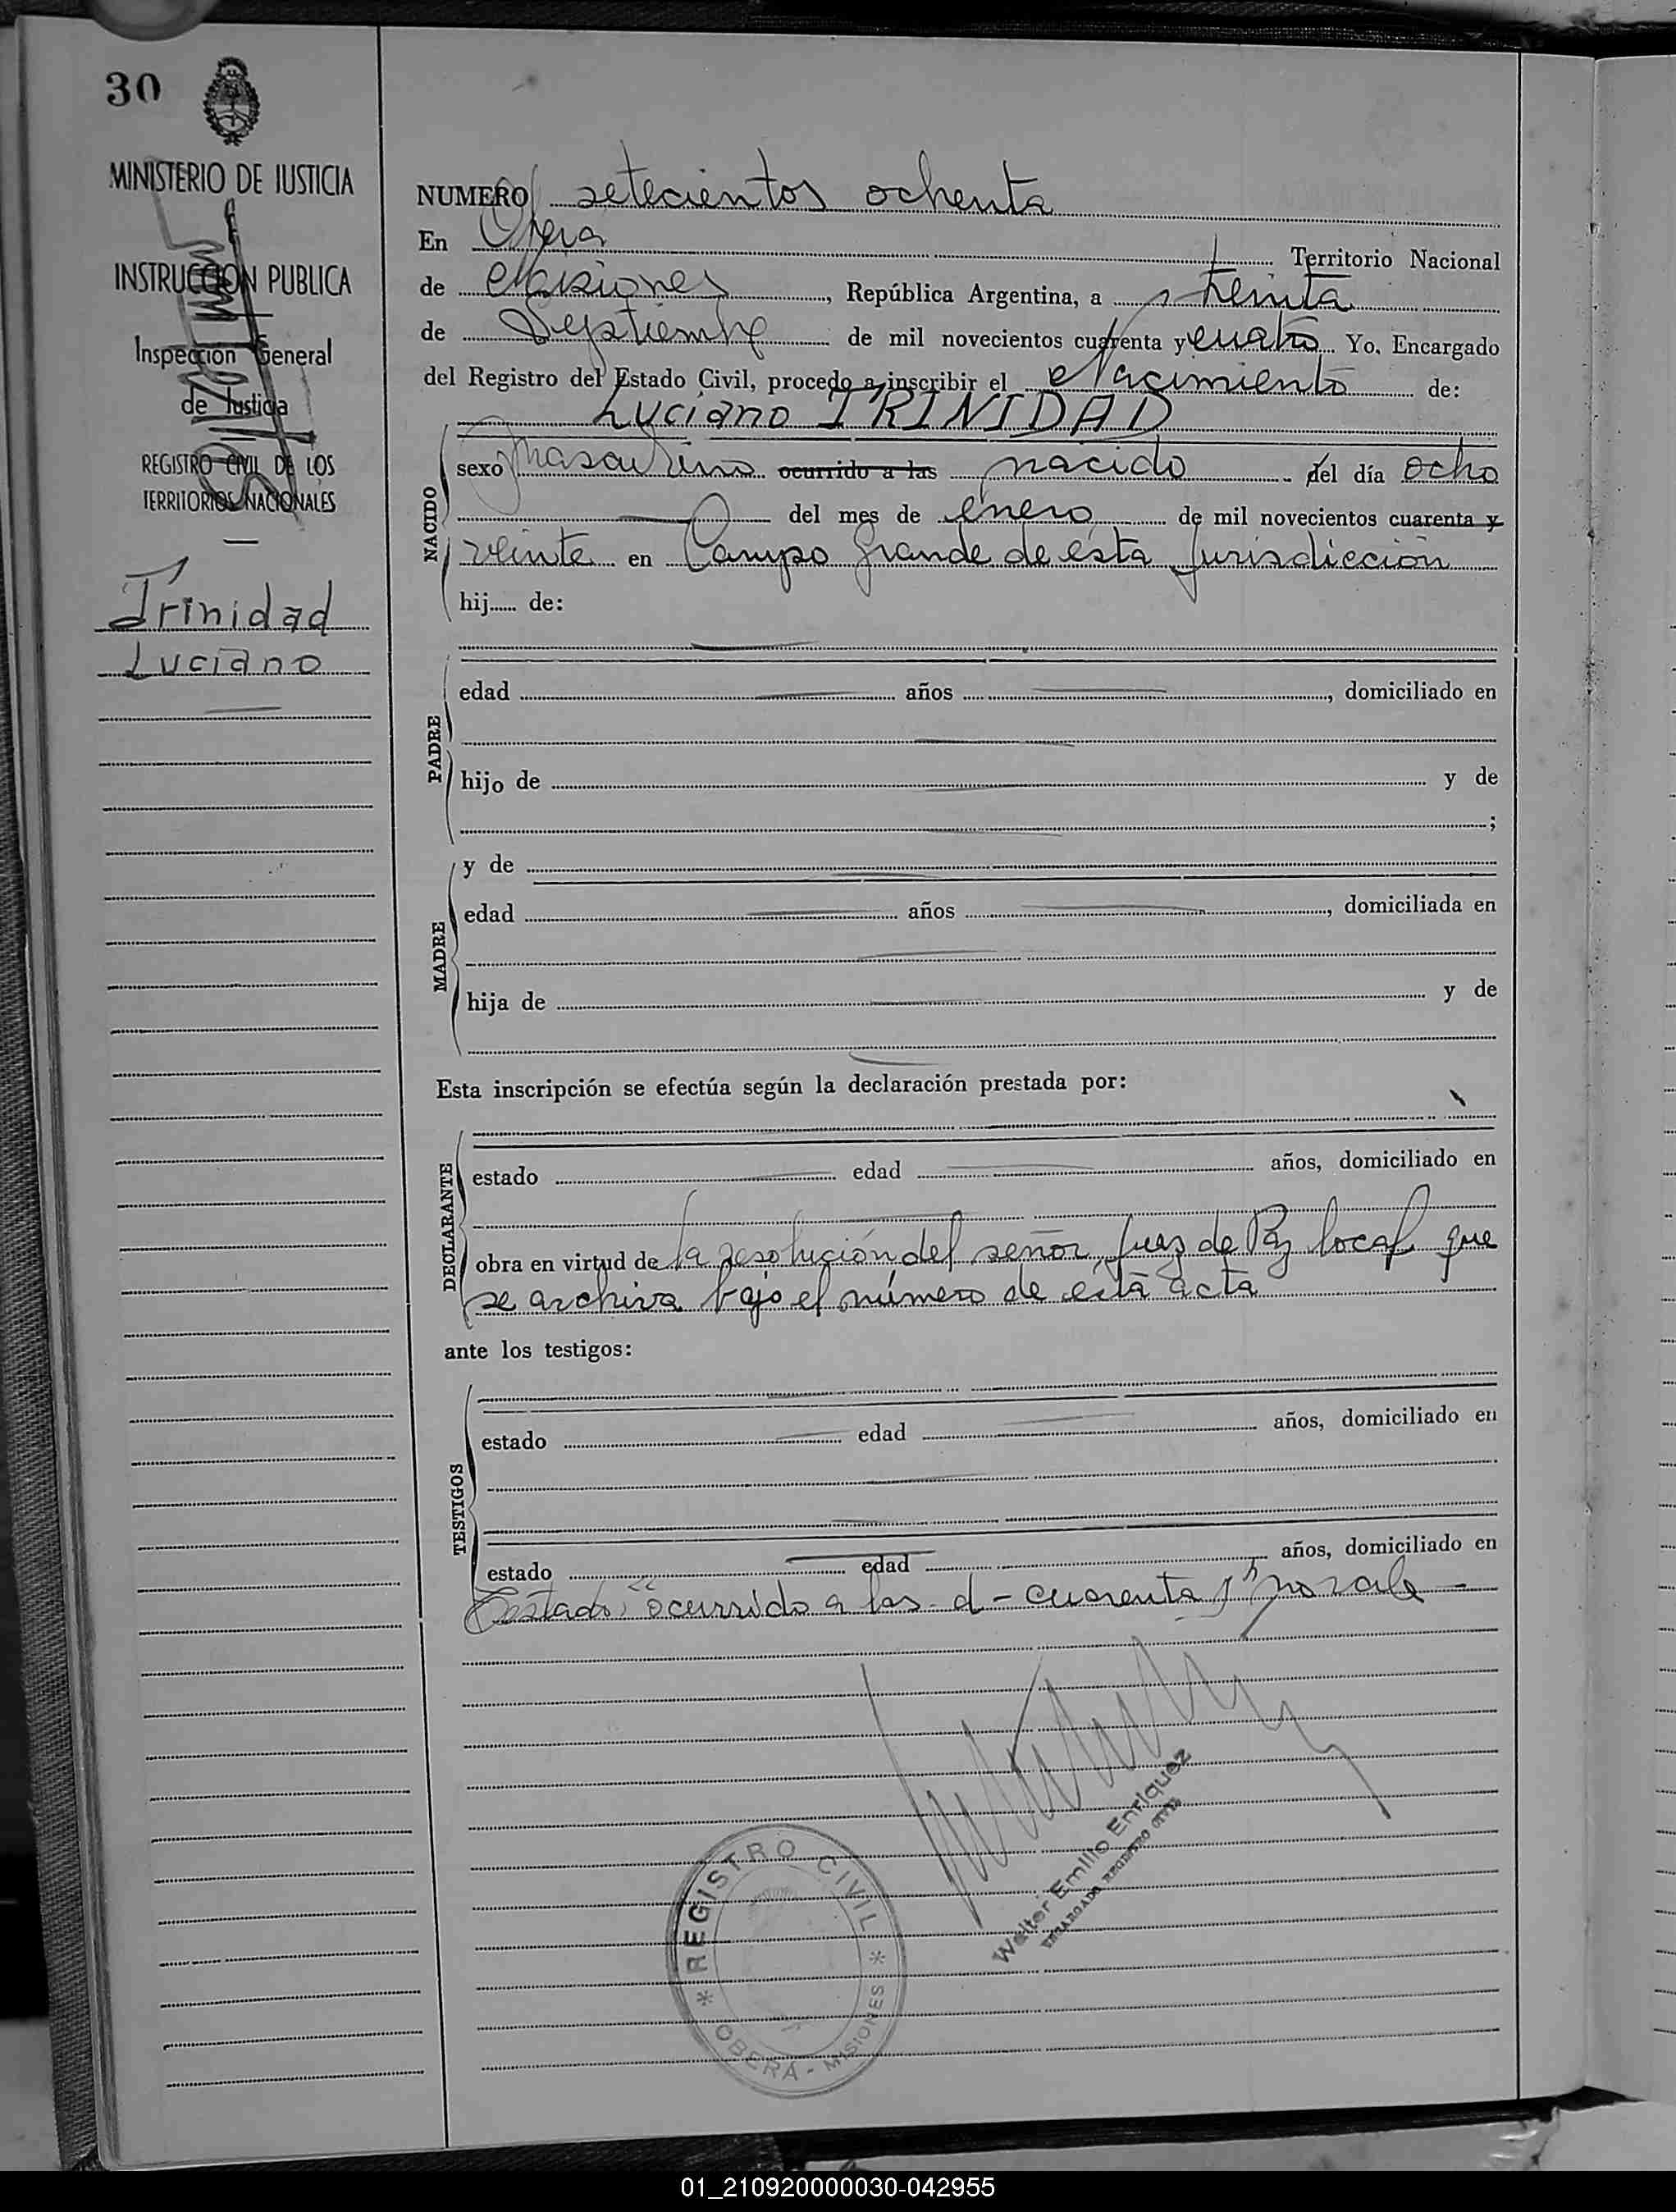 30
MINISTERIO DE JUSTICIA
INSTRUCCION PUBLICA
Inspección General
de Justicia
REGISTRO CIVIL DE LOS
TERRITORIOS NACIONALES
Trinidad
Luciano
NUMERO setecientos ochenta
En Obera Territorio Nacional
de Misiones, República Argentina, a treinta
de Septiembre de mil novecientos cuarenta y cuatro Yo, Encargado
del Registro del Estado Civil, procedo a inscribir el Nacimiento de:
Luciano TRINIDAD
NACIDO
sexo masculino ocurrido a las nacido del día ocho
del mes de enero de mil novecientos cuarenta y
veinte en Campo Grande de esta Jurisdicción
hij...... de:
PADRE
edad años , domiciliado en
hijo de y de
;
MADRE
y de
edad años , domiciliada en
hija de y de
Esta inscripción se efectúa según la declaración prestada por:
DECLARANTE
estado edad años, domiciliado en
obra en virtud de la resolución del señor Juez de Paz local que
se archiva bajo el número de esta acta
ante los testigos:
TESTIGOS
estado edad años, domiciliado en
estado edad años, domiciliado en
Testado: "ocurrido a las - d - cuarenta y" no vale -
Walter Emilio Enriquez
ENCARGADO REGISTRO CIVIL
* REGISTRO CIVIL *
OBERÁ - MISIONES
01_210920000030-042955